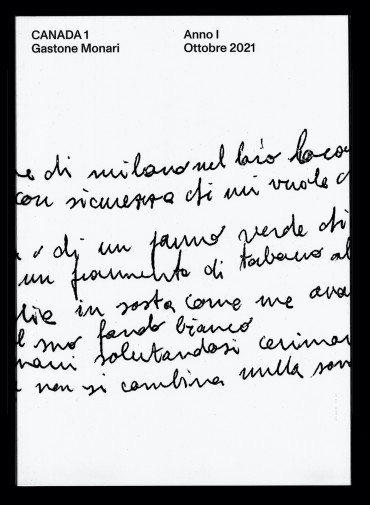 CANADA 1
Gastone Monari
Anno I
Ottobre 2021
e di milano nel laio
con sicurezza chi mi vuole
di un panno verde di
un frammento di tabacco al
in sosta come me ava
suo fondo bianco
salutandosi cerimo
non si combina nulla son